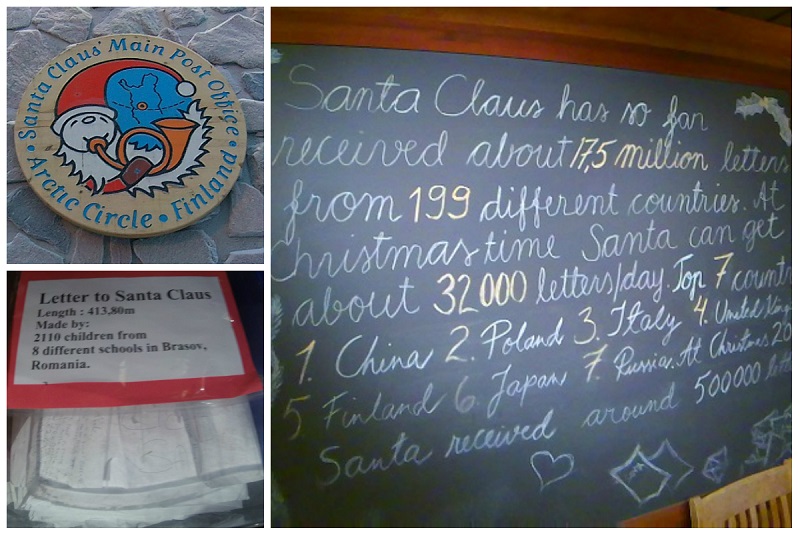 Santa Claus' Main Post Office
Arctic Circle • Finland
Letter to Santa Claus
Length : 413,80m
Made by:
2110 children from
8 different schools in Brasov,
Romania.
Santa Claus has so far
received about 17,5 million letters
from 199 different countries. At
Christmas time Santa can get
about 32000 letters/day. Top 7 countr
1. China 2. Poland 3. Italy 4. United King
5 Finland 6. Japan 7. Russia. At Christmas 20
Santa received around 500000 lett